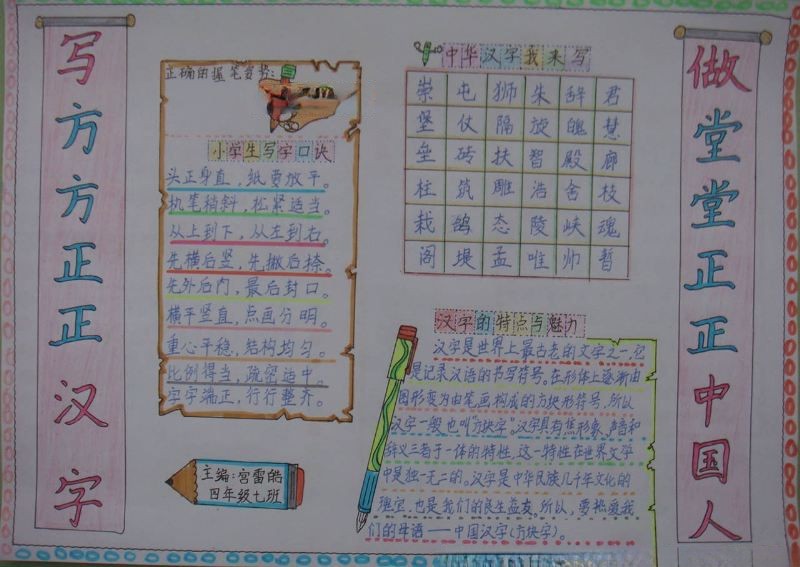 写方方正正汉字
正确的握笔姿势:
小学生写字口诀
头正身直，纸要放平。
执笔稍斜，松紧适当。
从上到下，从左到右。
先横后竖，先撇后捺。
先外后内，最后封口。
横平竖直，点画分明。
重心平稳，结构均匀。
比例得当，疏密适中。
字字端正，行行整齐。
主编:宫雷皓
四年级七班
中华汉字我来写
崇 屯 狮 朱 辞 君
堡 仗 隔 旋 魄 慧
垒 砖 扶 智 殿 廊
柱 筑 雕 浩 舍 枝
栽 鸽 态 陵 峡 魂
阁 堤 孟 唯 帅 暂
汉字的特点与魅力
汉字是世界上最古老的文字之一,它
是记录汉语的书写符号。在形体上逐渐由
图形变为由笔画构成的方块形符号,所以
汉字一般也叫“方块字”。汉字具有集形象、声音和
辞义三者于一体的特性,这一特性在世界文字
中是独一无二的。汉字是中华民族几千年文化的
瑰宝,也是我们的良生益友。所以,要热爱我
们的母语——中国汉字(方块字)。
做堂堂正正中国人